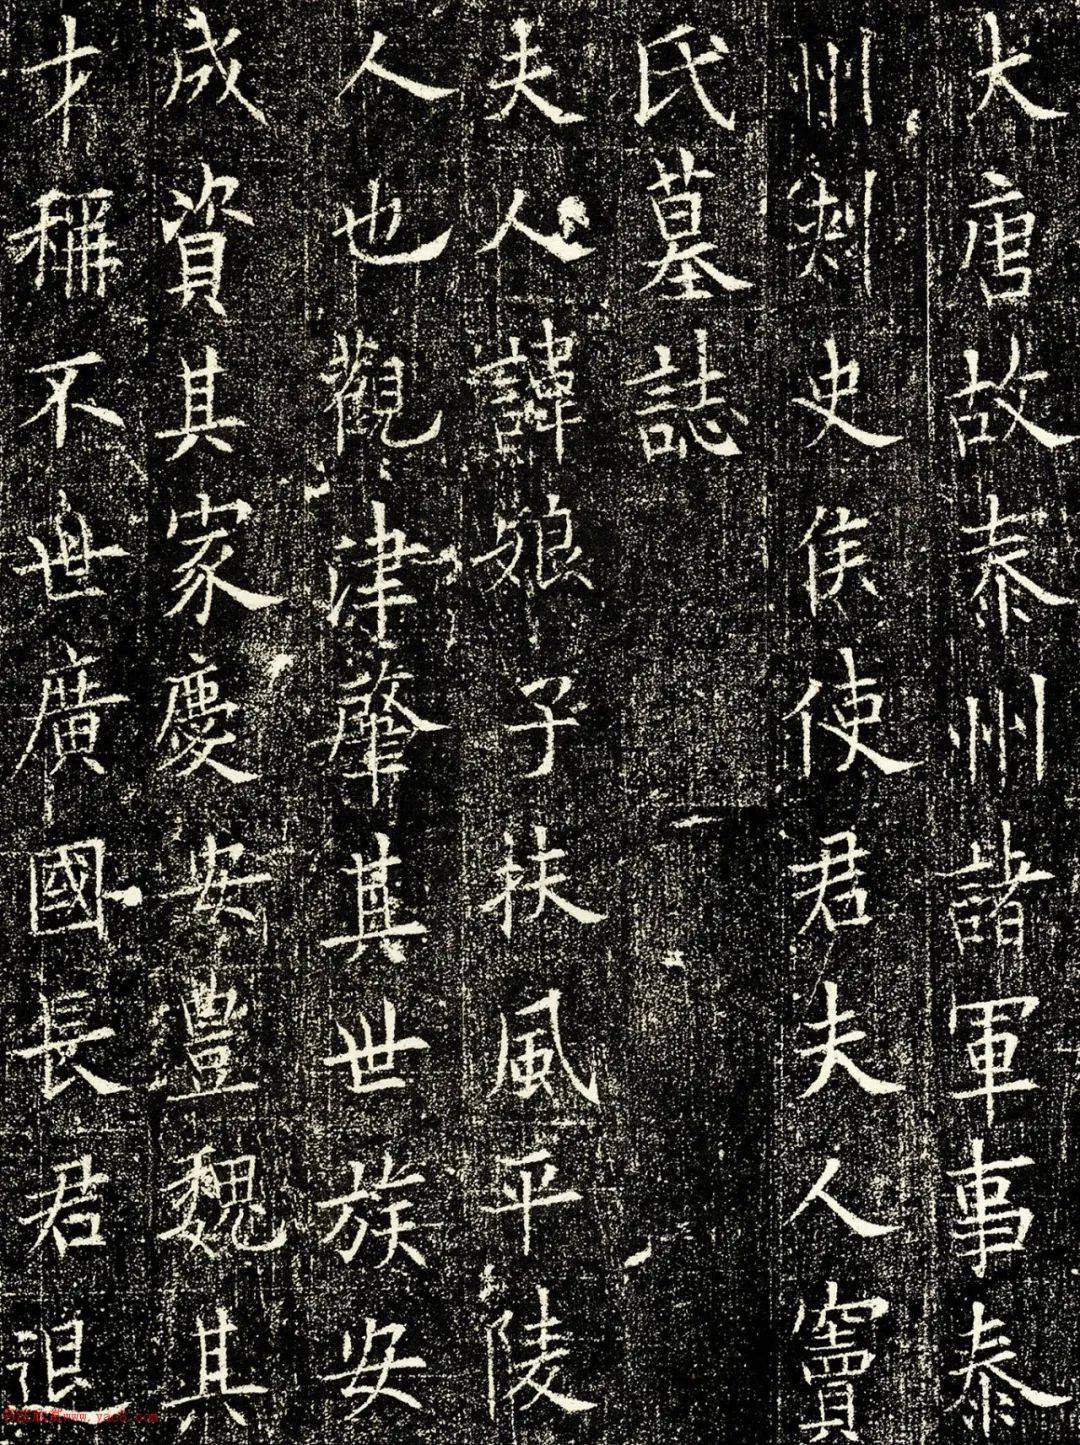 大唐故泰州諸軍事泰
州刺史侯使君夫人竇
氏墓誌
夫人諱娘子扶風平陵
人也觀津肇其世族安
成資其家慶安豐魏其
才稱不世廣國長君退
www.yac8.com